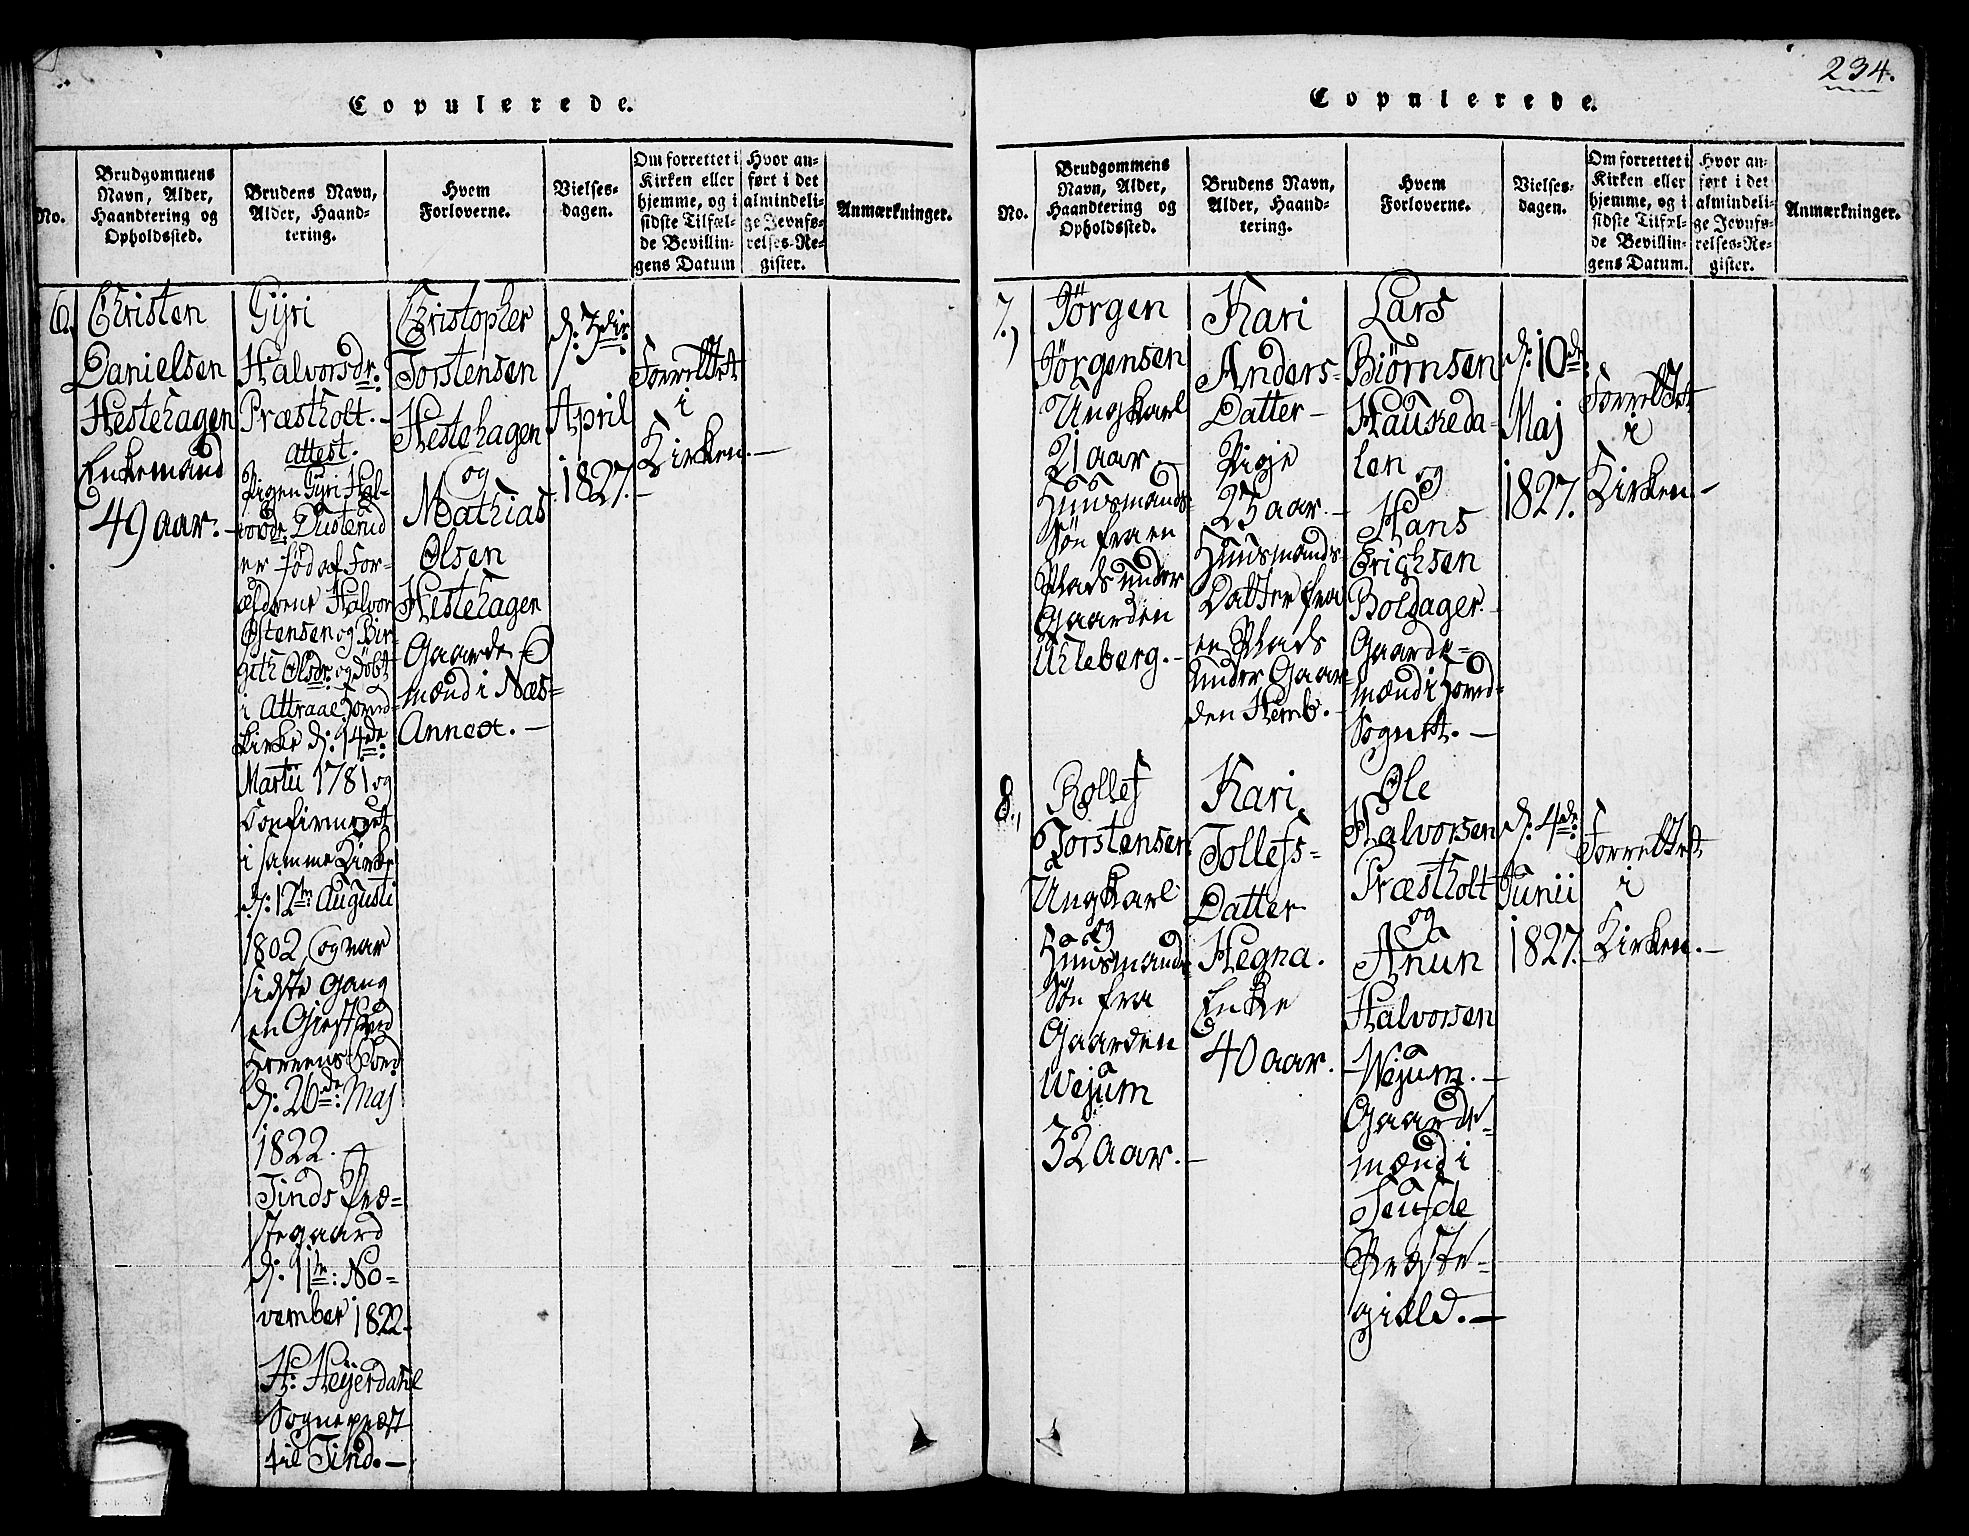 Copulerede.
No.
Brudgommens
Navn, Alder,
Haandtering og
Opholdssted.
Brudens Navn,
Alder, Haand-
tering.
Hvem
Forloverne.
Vielses-
dagen.
Om forrettet i
Kirken eller
hjemme, og i
sidste Tilfæl-
de Bevillin-
gens Datum
Hvor an-
ført i det
almindeli-
ge Jevnfø-
relses-Re-
gister.
Anmærkninger.
6.
Christen
Danielsen
Hestehagen
Enkemand
49 aar.
Gyri
Halvorsdr:
Præstholt.-
Attest.
Pigen Gyri Hal-
vorsdr: Dusterud
er fød af For-
ældrene Halvor
Østensen og Bir-
gith Olsdr: og døbt
i Attraae Hoved-
kirke d: 14de
Martii 1781 og
Confirmeret
i samme Kirke
d: 12te Augusti
1802, og var
sidste Gang
en Giest ved
Herrens Bord
d: 26de: Maj
1822.
Tinds Præ-
stegaard
d: 11te: No-
vember 1822.
H: Heÿerdahl
Sognepræst
til Tind.-
Christopher
Torstensen
Hestehagen
og
Mathias
Olsen
Hestehagen
Gaarde-
mænd i Næs-
Annex.-
d: 7die
April
1827.-
Forrettet
i
Kirken.-
Copulerede.
234.
No.
Brudgommens
Navn, Alder,
Haandtering og
Opholdssted.
Brudens Navn,
Alder, Haand-
tering.
Hvem
Forloverne.
Vielses-
dagen.
Om forrettet i
Kirken eller
hjemme, og i
sidste Tilfæl-
de Bevillin-
gens Datum.
Hvor an-
ført i det
almindeli-
ge Jevnfø-
relses-Re-
gister.
Anmærkninger.
7.,
Jörgen
Jörgensen
Ungkarl
21 aar
Huusmands
Søn fra en
Plads under
Gaarden
Uileberg.-
Kari
Anders-
Datter-
Pige
25 aar.-
Huusmands-
Datter fra
en Plads
under Gaar-
den Hemb.-
Lars
Biörnsen
Haukeda-
len og
Hans
Erichsen
Boldager
Gaarde-
mænd i Hoved-
Sognet.-
d: 10de
Maj
1827.
Forrettet
i
Kirken.-
8.,
Rollef
Torstensen
Ungkarl
og
Huusmands
Søn fra
Gaarden
Wejum
32 aar.-
Kari
Tollefs-
Datter
Hegna.
Enke
40 aar.-
Ole
Halvorsen
Præstholt
og
Anun
Halvorsen
Wejum.-
Gaarde-
mænd i
Seufde
Præste-
gield.-
d: 4de
Junii
1827.
Forrettet
i
Kirken.-